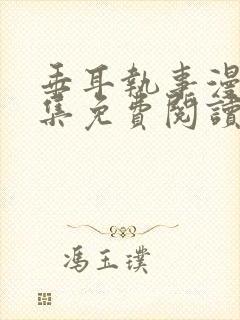 垂耳執事漫
集免費閱讀
馮玉璞